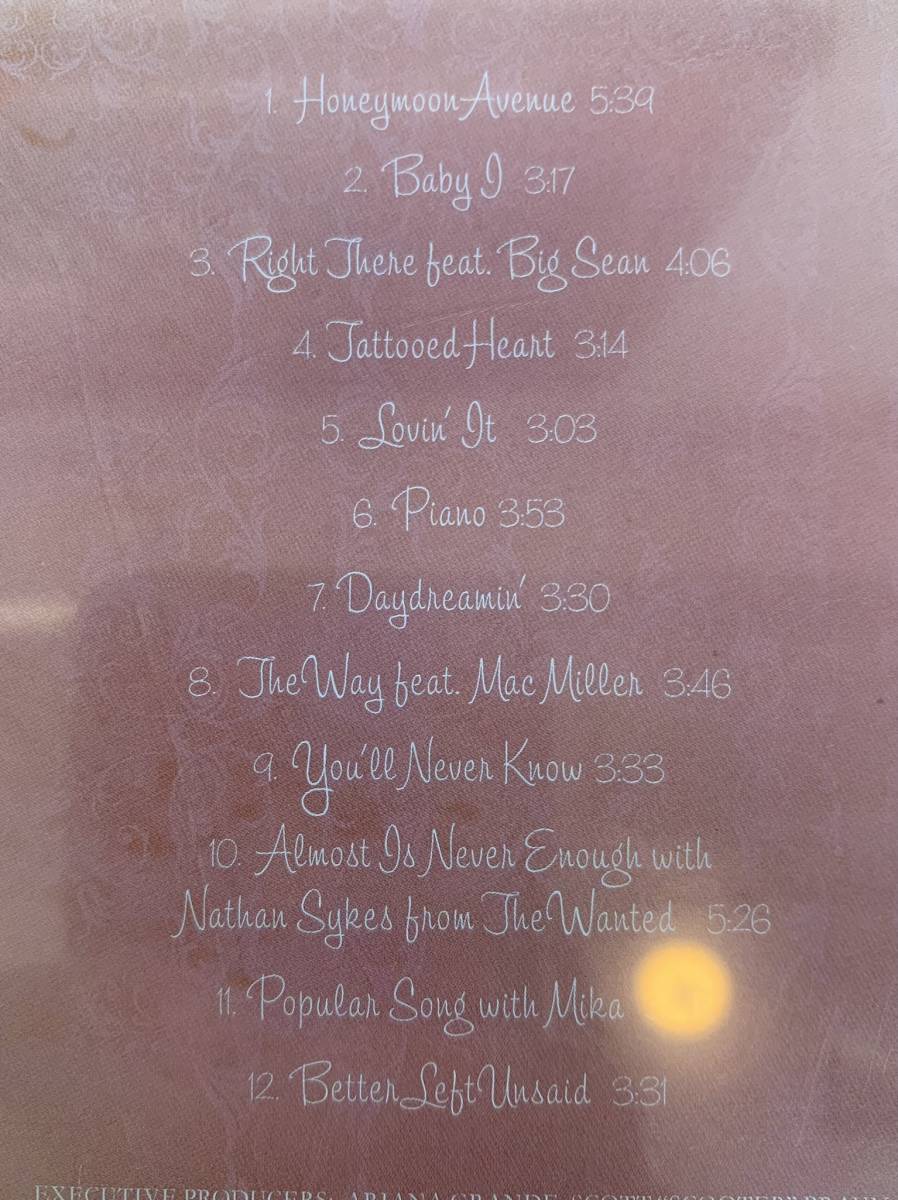 1. Honeymoon Avenue 5:39
2. Baby I 3:17
3. Right There feat. Big Sean 4:06
4. Tattooed Heart 3:14
5. Lovin' It 3:03
6. Piano 3:53
7. Daydreamin' 3:30
8. The Way feat. Mac Miller 3:46
9. You'll Never Know 3:33
10. Almost Is Never Enough with
Nathan Sykes from The Wanted 5:26
11. Popular Song with Mika
12. Better Left Unsaid 3:31
EXECUTIVE PRODUCERS: ARIANA GRANDE, SCOTT "SCOOTER"